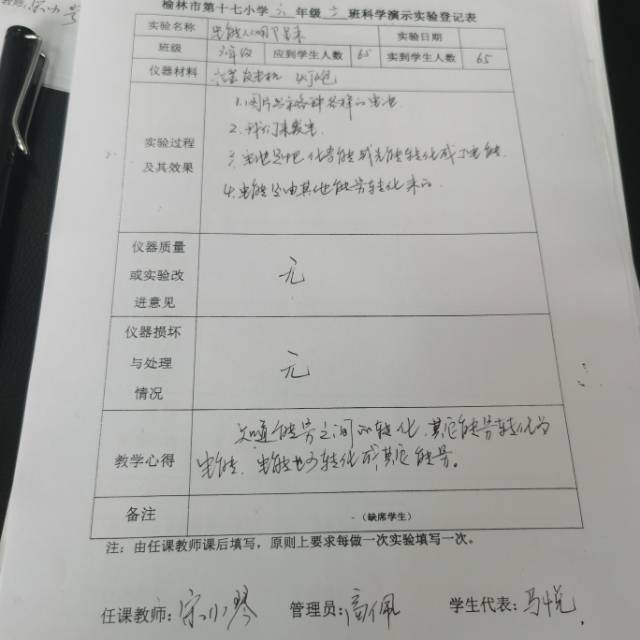 榆林市第十七小学 六 年级 二 班科学演示实验登记表
实验名称 电能从哪里来 实验日期
班级 应到学生人数 65 实到学生人数 65
仪器材料 小电
实验过程及其效果
1.图片展示各种各样的电池
2.我们来发电
3.电池是把化学能或光能转化成了电能.
4.电能是由其他能量转化来的.
仪器质量
或实验改
进意见
无
仪器损坏
与处理
情况
无
教学心得
知道能量之间的转化,其它能量转化为
电能,电能也可转化成其它能量。
备注 (缺席学生)
注：由任课教师课后填写，原则上要求每做一次实验填写一次。
任课教师：宋小琴 管理员：高佩 学生代表：马悦